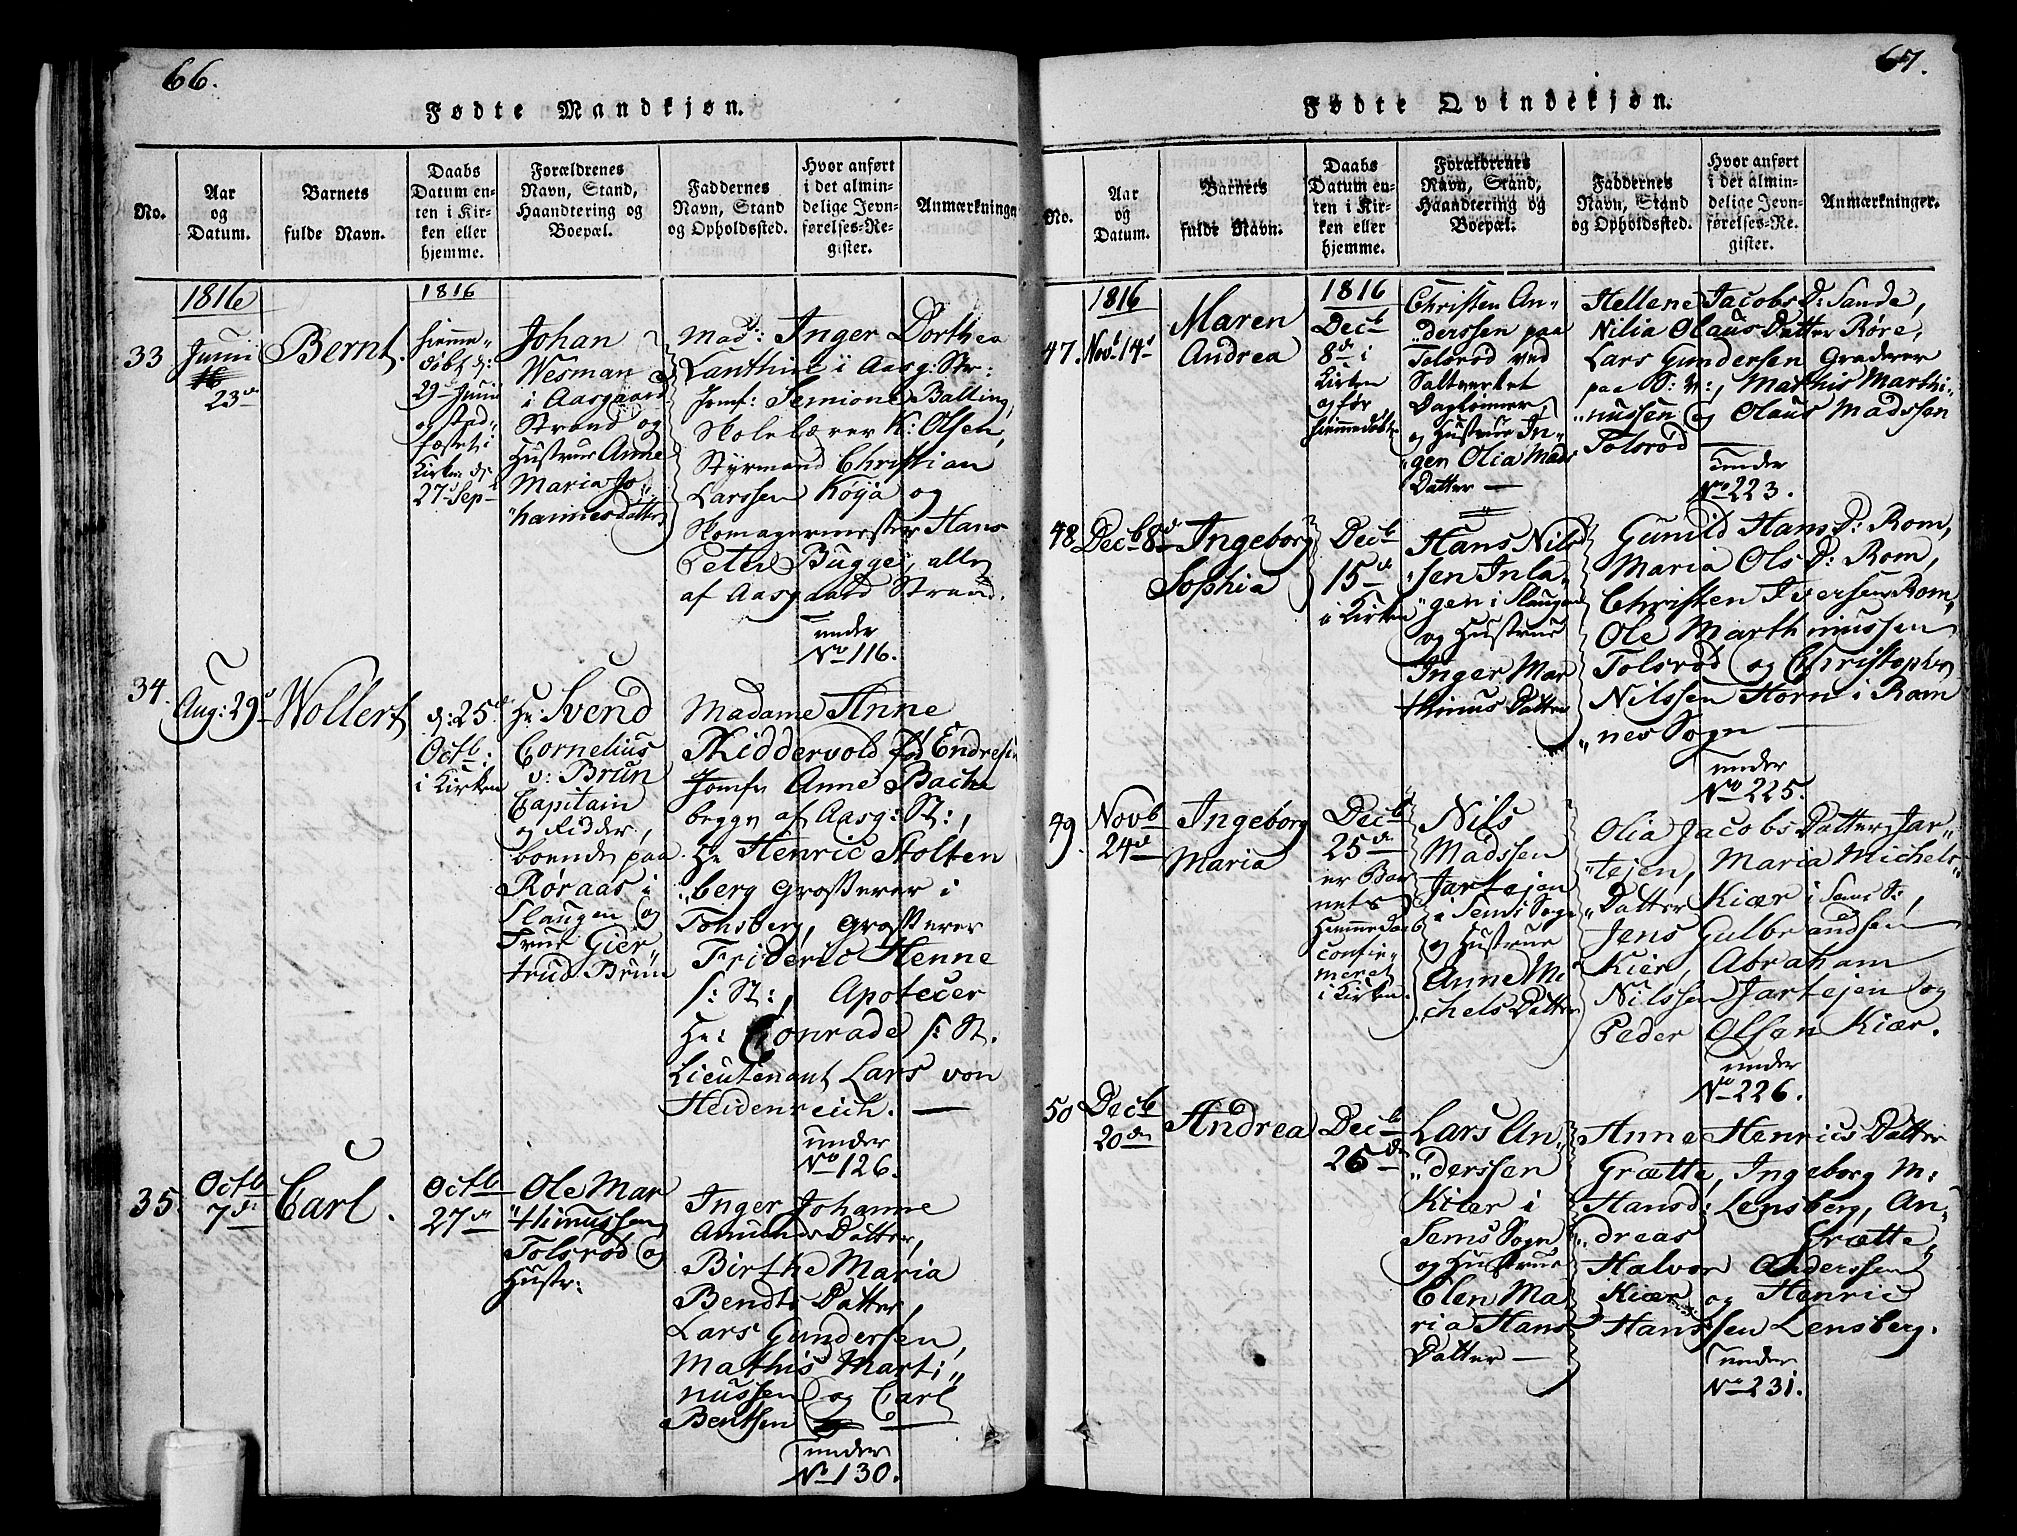 66.
Fødte Mandkjøn.
No.
Aar
og
Datum.
Barnets
fulde Navn.
Daabs
Datum en-
ten i Kir-
ken eller
hjemme.
Forældrenes
Navn, Stand,
Haandtering og
Boepæl.
Faddernes
Navn, Stand
og Opholdssted.
Hvor anført
i det almin-
delige Jevn-
førelses-Re-
gister.
Anmærkninger
1816
33
Junii
16
23de
Bernt.
1816
hiemme-
døbt d:
29 Junii
og stad-
fæstet i
Kirken d:
27 Sep
Johan
Wesman
i Aasgaard
Strand og
Hustrue Anne
Maria Jo-
"hannesdatter
Mad: Inger Dorthea
Lanthin i Aasg: Str:
Jomf: Semione Balling,
Skolelærer K: Olsen,
Styrmand Christian
Larssen Køya og
Skomagermester Hans
Peter Bugge, alle
af Aasgaard Strand.
under
No 116.
34.
Aug: 29
Wollert
d: 25
Octb:
i Kirken
Hr: Svend
Cornelius
v: Brun
Capitain
og Ridder,
boende paa
Røraas i
Slaugen og
Frue Gier
trud Brün
Madame Anne
Riddervold fød Endresen
Jomfr Anne Bache
begge af Aasg: St:,
Hr Henric Stolten
"berg Grosserer i
Tønsberg, Grosserer
Frideric Henne
s: St:, Apotecer
Hr: Conrade s: St.
Lieutenant Lars von
Heidenreich.
under
No 126.
35.
Octb
7de
Carl.
Octb
27de
Ole Mar
"thinussen
Tolsrød og
Hustr:
Inger Johanne
Amunds Datter,
Birthe Maria
Bendts Datter,
Lars Gundersen,
Mathis Marti"
nussen og Carl
Bentsen
under
No 130.
67.
Fødte Qvindekjøn.
No.
Aar
og
Datum.
Barnets
fulde Navn.
Daabs
Datum en-
ten i Kir-
ken eller
hjemme.
Forældrenes
Navn, Stand,
Haandtering og
Boepæl.
Faddernes
Navn, Stand
og Opholdssted.
Hvor anført
i det almin-
delige Jevn-
førelses-Re-
gister.
Anmærkninger.
1816
47.
Novb 14
Maren
Andrea
1816
Decb
8de i
Kirken
og før
hiemmedøbt
Christen An-
"derssen paa
Tolsrød ved
Saltverket
Daglønner,
og Hustrue In-
"gen Olia Mads
Datter
Hellene Jacobs D: Sande,
Nilia Olaus Datter Røre,
Lars Gundersen Graderer
paa S: V:, Mathis Marthi-
"nussen og Olaus Madssen
Tolsrød
under
No 223.
48
Decb 8de
Ingeborg
Sophia
Decb
15de
i Kirken
Hans Nils
"sen Inla-
"gen i Slaugen
og Hustrue
Inger Mar
thinus Datter
Gunild Hans D: Rom,
Maria Ols D: Rom,
Christen Iversen Rom,
Ole Marthinussen
Tolsrød og Christopher
Nilssen Horn i Ram
"nes Sogn
under
No 225.
49.
Novb
24de
Ingeborg
Maria
Decb
25de
er Bar
nets
Hiemmedaab
confir-
meret
i Kirken.
Nils
Madssen
Jartejen
i Sems Sogn
og Hustrue
Anne Mi
chels Datter
Olia Jacobs Datter Jar-
"tejen, Maria Michels-
"Datter Kiær i Sems S:,
Jens Gulbrandsen
Kier, Abraham
Nilssen Jartejen og
Peder Olsen Kiær.
under
No 226.
50
Decb
20de
Andrea
Decb
26de
Lars An-
"derssen
Kiær i
Sems Sogn
og Hustrue
Elen Ma
ria Hans
Datter
Anne Henrics Datter
Grætte, Ingeborg M:
Hansd: Lensberg, An-
"dreas Grætte,
Halvor Anderssen
Kiær og Henric
Hanssen Lensberg.
under
No 231.